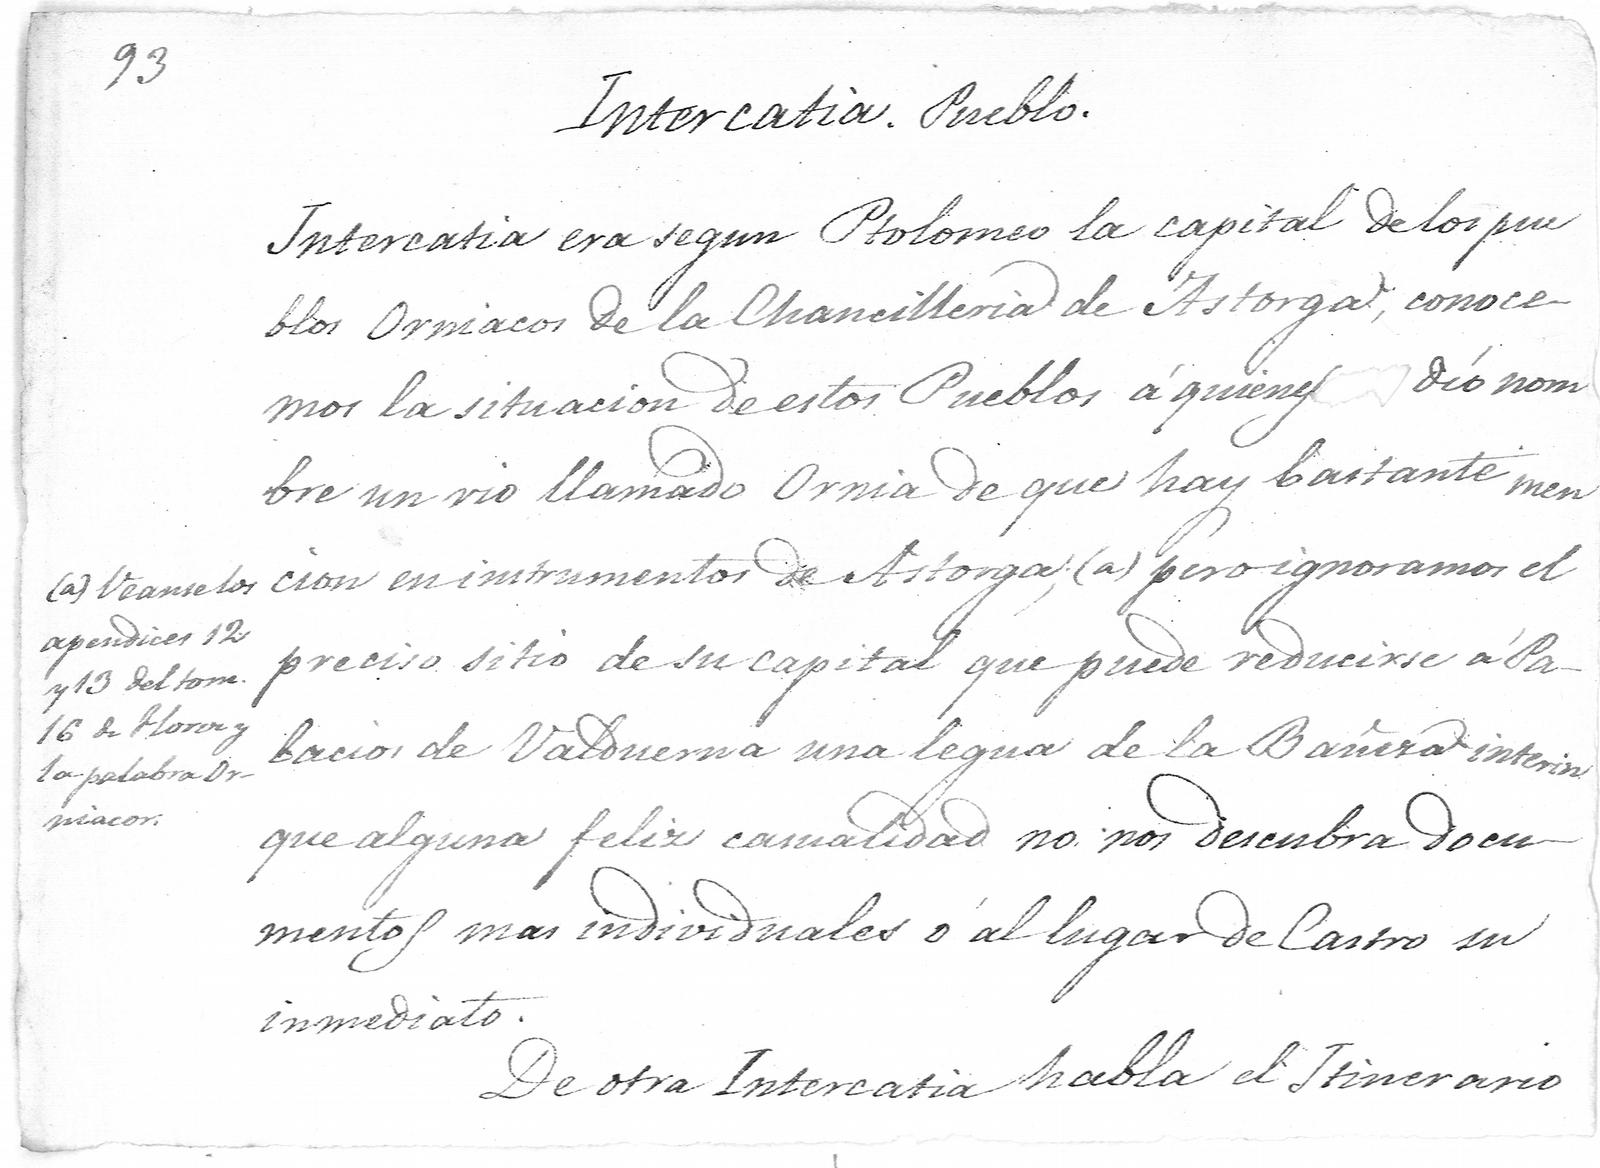 93
Intercatia. Pueblo.
Intercatia era segun Ptolomeo la capital de los pue
blos Orniacos de la Chancilleria de Astorga, conoce-
mos la situacion de estos Pueblos á quienes dió nom
bre un rio llamado Ornia de que hay bastante men
cion en instrumentos de Astorga, (a) pero ignoramos el
preciso sitio de su capital que puede reducirse á Pa-
lacios de Valduerna una legua de la Bañeza interin
que alguna feliz casualidad no nos descubra docu-
mentos mas individuales ó al lugar de Castro su
inmediato.
De otra Intercatia habla el Itinerario
(a) Veanse los
apendices 12
y 13 del tom.
16 de Florez y
la palabra Or-
niacos.